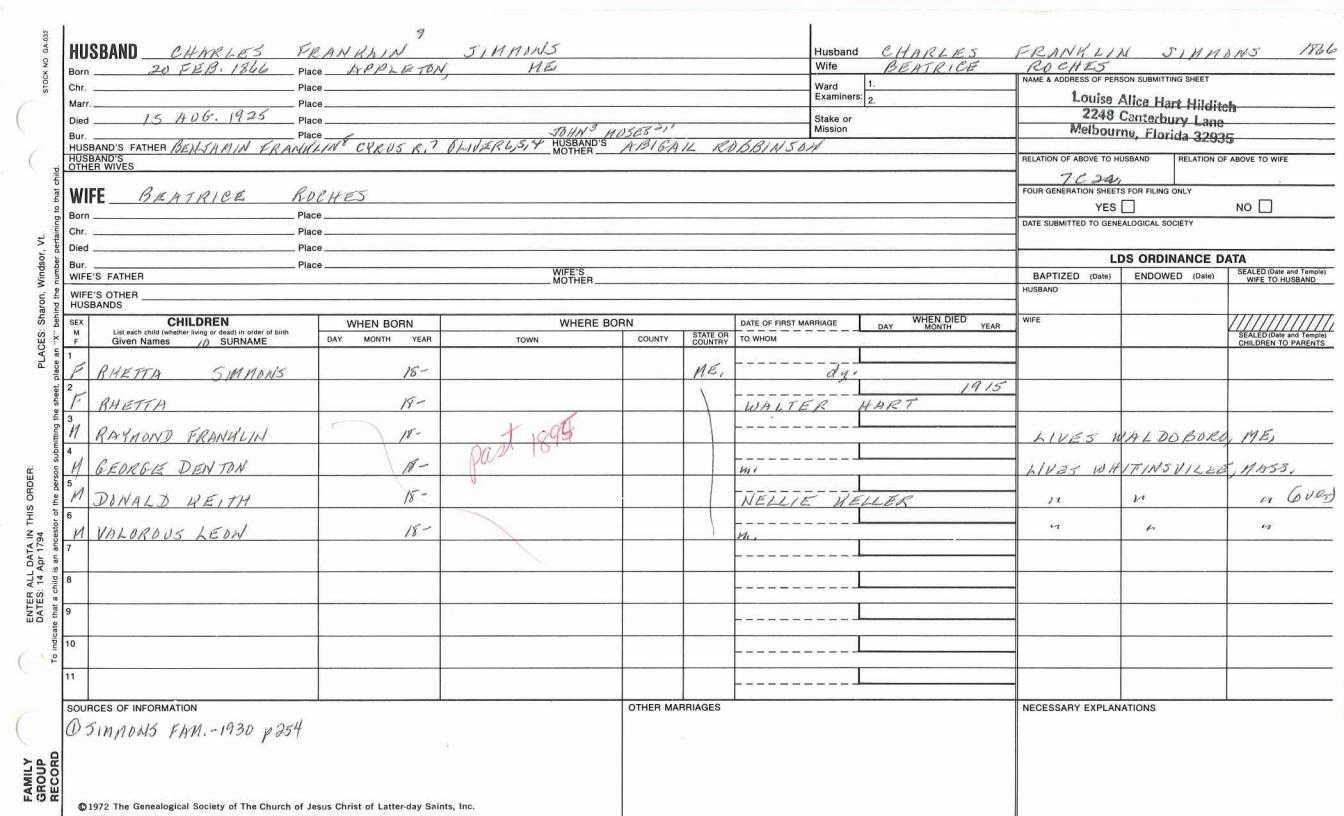 STOCK NO. GA-033
HUSBAND CHARLES FRANKLIN 9 SIMMONS
Born 20 FEB. 1866 Place APPLETON, ME
Chr. Place
Marr. Place
Died 15 AUG. 1925 Place
Bur. Place
JOHN 3 MOSES 2, 1
HUSBAND'S FATHER BENJAMIN FRANKLIN 8 CYRUS R. 7 OLIVER 6, 5, 4 HUSBAND'S MOTHER ABIGAIL ROBBINSON
HUSBAND'S OTHER WIVES
Husband CHARLES FRANKLIN SIMMONS 1866
Wife BEATRICE ROCHES
Ward Examiners: 1.
2.
Stake or Mission
NAME & ADDRESS OF PERSON SUBMITTING SHEET
Louise Alice Hart Hilditch
2248 Canterbury Lane
Melbourne, Florida 32935
RELATION OF ABOVE TO HUSBAND RELATION OF ABOVE TO WIFE
FOUR GENERATION SHEETS FOR FILING ONLY
YES NO
DATE SUBMITTED TO GENEALOGICAL SOCIETY
WIFE BEATRICE ROCHES
Born Place
Chr. Place
Died Place
Bur. Place
WIFE'S FATHER WIFE'S MOTHER
WIFE'S OTHER HUSBANDS
LDS ORDINANCE DATA
BAPTIZED (Date) ENDOWED (Date) SEALED (Date and Temple) WIFE TO HUSBAND
HUSBAND
WIFE
SEALED (Date and Temple) CHILDREN TO PARENTS
SEX M F CHILDREN List each child (whether living or dead) in order of birth Given Names 10 SURNAME WHEN BORN DAY MONTH YEAR WHERE BORN TOWN COUNTY STATE OR COUNTRY DATE OF FIRST MARRIAGE TO WHOM WHEN DIED DAY MONTH YEAR
1 F RHETTA SIMMONS 18- ME. dy.
2 F RHETTA 18- WALTER HART 1915
3 M RAYMOND FRANKLIN 18- LIVES WALDOBORO, ME,
past 1895
4 M GEORGE DENTON 18- m. LIVES WHITINSVILLE, MASS.
5 M DONALD KEITH 18- NELLIE KELLER " " " (over)
6 M VALOROUS LEON 18- m. " " "
7
8
9
10
11
SOURCES OF INFORMATION
① SIMMONS FAM.-1930 p254
OTHER MARRIAGES
NECESSARY EXPLANATIONS
©1972 The Genealogical Society of The Church of Jesus Christ of Latter-day Saints, Inc.
FAMILY GROUP RECORD
ENTER ALL DATA IN THIS ORDER:
DATES: 14 Apr 1794 PLACES: Sharon, Windsor, Vt.
To indicate that a child is an ancestor of the person submitting the sheet, place an "X" behind the number pertaining to that child.